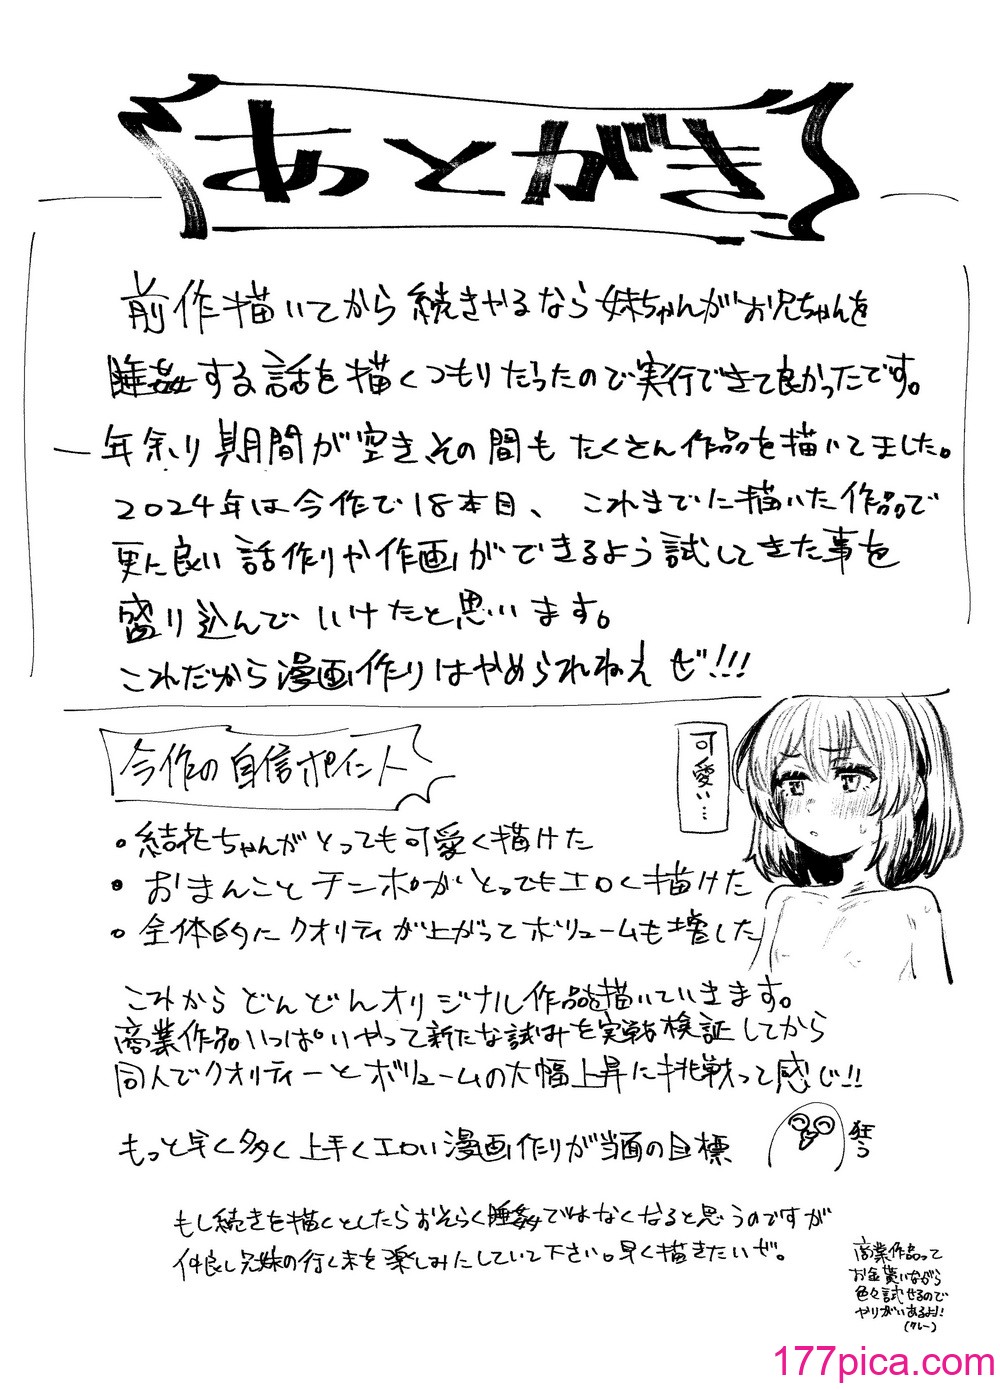 あとがき
前作描いてから続きやるなら妹ちゃんがお兄ちゃんを
睡姦する話を描くつもりだったので実行できて良かったです。
一年余り期間が空き、その間もたくさん作品を描いてました。
2024年は今作で18本目、これまでに描いた作品で
更に良い話作りや作画ができるよう試してきた事を
盛り込んでいけたと思います。
これだから漫画作りはやめられねえぜ!!!
今作の自信ポイント
可愛い…
・結花ちゃんがとっても可愛く描けた
・おまんことチンポがとってもエロく描けた
・全体的にクオリティが上がってボリュームも増した
これからどんどんオリジナル作品を描いていきます。
商業作品いっぱいやって新たな試みを実戦検証してから
同人でクオリティーとボリュームの大幅上昇に挑戦って感じ!!
もっと早く多く上手くエロい漫画作りが当面の目標
狂う
もし続きを描くとしたらおそらく睡姦ではなくなると思うのですが
仲良し兄妹の行く末を楽しみにしていて下さい。早く描きたいぜ。
商業作品って
お金貰いながら
色々試せるので
やりがいあるよ!!
(クレー)
177pica.com